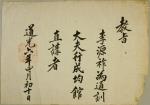 教旨
李源祚為通訓
大夫行成均館
直講者
道光六年十二月初十日